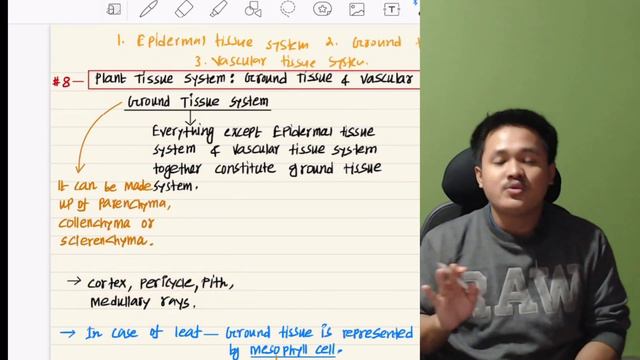 1. Epidermal tissue system 2. Ground t
3. Vascular tissue system.
#8— Plant Tissue System: Ground Tissue & Vascular
Ground Tissue System
Everything except Epidermal tissue
system & vascular tissue system
together constitute ground tissue
system.
It can be made
up of parenchyma,
collenchyma or
sclerenchyma.
→ cortex, pericycle, pith,
medullary rays.
→ In case of leaf — Ground tissue is represented
by mesophyll cell.
RAW